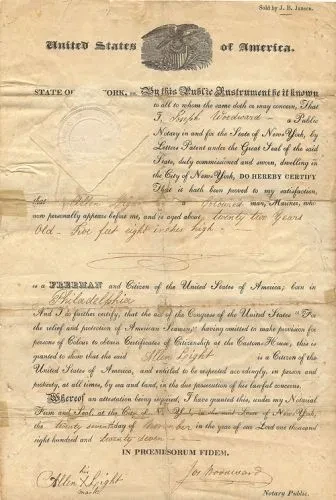 Sold by J. B. Jansen.
United States of America.
STATE OF YORK, ss. By this Public Instrument be it known
to all to whom the same doth or may concern, That
I, Joseph Woodward a Public
Notary in and for the State of New-York, by
Letters Patent under the Great Seal of the said
State, duly commissioned and sworn, dwelling in
the City of New-York, DO HEREBY CERTIFY
That it hath been proved to my satisfaction,
that Allen Light a Coloured man, Mariner, who
now personally appears before me, and is aged about twenty two Years
Old - Five feet eight inches high -
is a FREEMAN and Citizen of the United States of America; born in
Philadelphia
And I do further certify, that the act of the Congress of the United States "For
the relief and protection of American Seamen," having omitted to make provision for
persons of Colour to obtain Certificates of Citizenship at the Custom-House, this is
granted to show that the said Allen Light is a Citizen of the
United States of America, and entitled to be respected accordingly, in person and
property, at all times, by sea and land, in the due prosecution of his lawful concerns.
Whereof an attestation being required, I have granted this, under my Notarial
Form and Seal, at the City of New-York, in the State of New-York,
the twenty seventh day of in the year of our Lord one thousand
eight hundred and twenty seven -
IN PRÆMISSORUM FIDEM.
his
Allen X Light
mark
Jos Woodward
Notary Public.